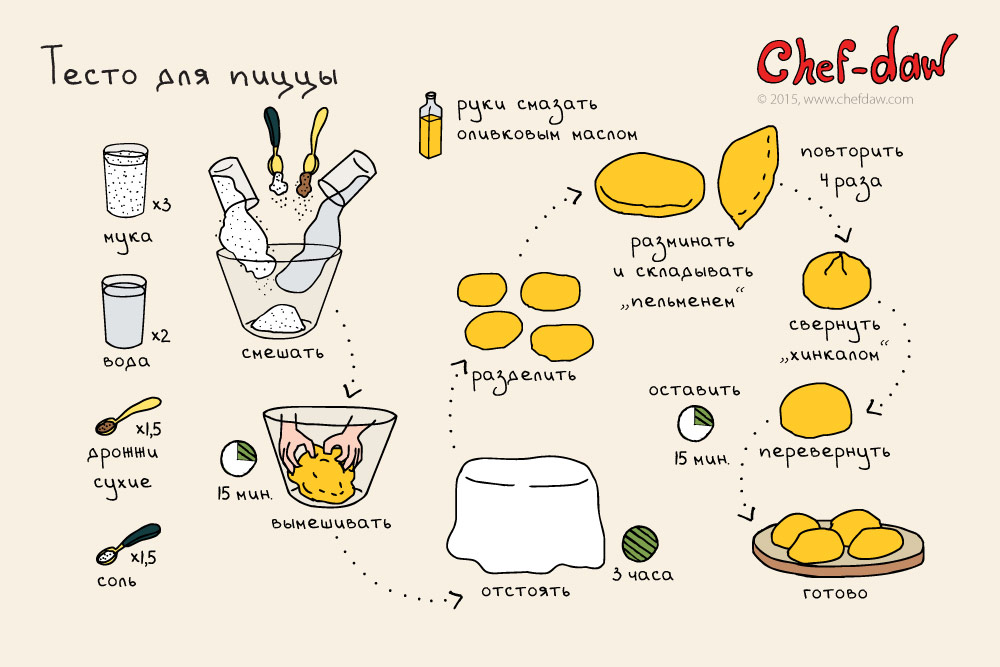 Тесто для пиццы
Chef-daw
© 2015, www.chefdaw.com
x3
мука
x2
вода
x1,5
дрожжи
сухие
x1,5
соль
смешать
15 мин.
вымешивать
отстоять
3 часа
разделить
руки смазать
оливковым маслом
разминать
и складывать
„пельменем“
повторить
4 раза
свернуть
„хинкалом“
перевернуть
оставить
15 мин.
готово